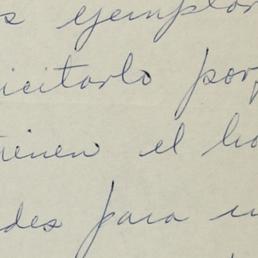 s ejemplar
icitarlo por
tienen el ho
des para u